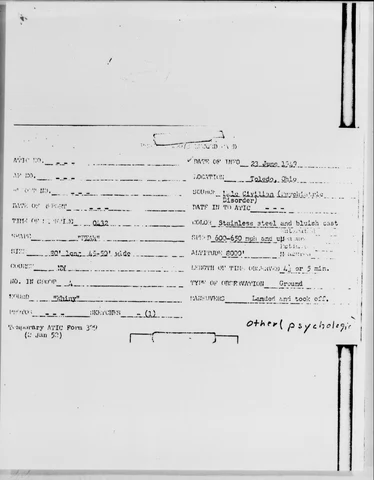 ATIC NO. - - -
DATE OF INFO 23 June 1949
AF NO. - - -
LOCATION Toledo, Ohio
REPORT NO. - - -
SOURCE Civilian (Psychiatric Disorder)
DATE OF REPORT - - -
DATE IN TO ATIC - - -
TIME OF SIGHTING 0432
COLOR Stainless steel and bluish cast
SHAPE
SPEED 600-650 mph and up
SIZE 80' long 45-50' wide
ALTITUDE 8000'
COURSE NW
LENGTH OF TIME OBSERVED 4½ or 5 min.
NO. IN GROUP
TYPE OF OBSERVATION Ground
SOUND
MANEUVERS Landed and took off.
PHOTOS - - - SKETCHES - (1)
Temporary ATIC Form 329
(2 Jan 52)
other( psychologic